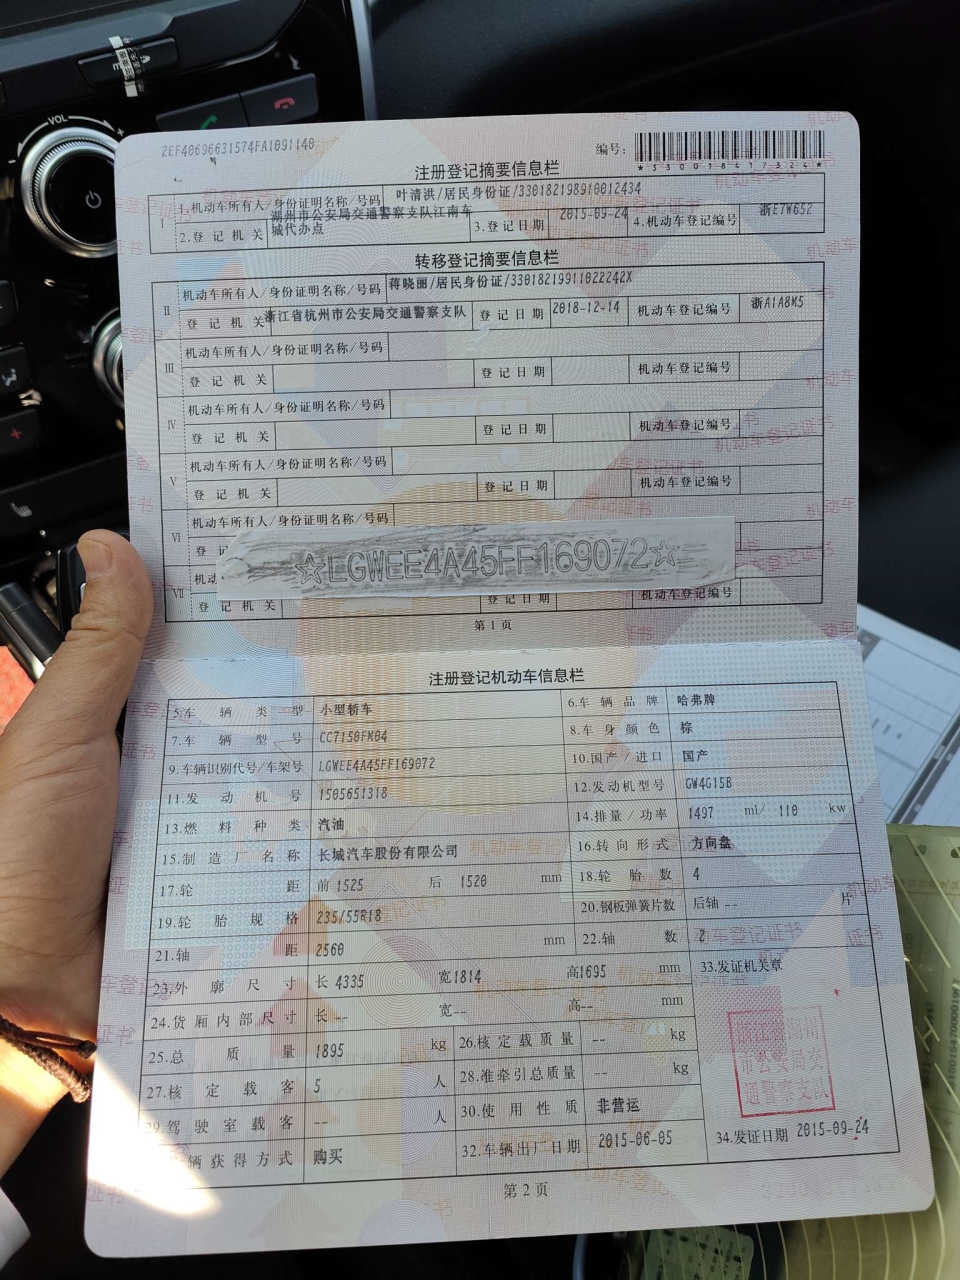 VOL
2EF40696631574FA1091140
编号:
*330018417324*
注册登记摘要信息栏
I 1.机动车所有人/身份证明名称/号码 叶清洪/居民身份证/330182198910012434
2.登记机关 湖州市公安局交通警察支队江南车城代办点 3.登记日期 2015-09-24 4.机动车登记编号 浙E7W652
转移登记摘要信息栏
II 机动车所有人/身份证明名称/号码 蒋晓丽/居民身份证/33018219911022242X
登记机关 浙江省杭州市公安局交通警察支队 登记日期 2018-12-14 机动车登记编号 浙A1A8M5
III 机动车所有人/身份证明名称/号码
登记机关 登记日期 机动车登记编号
IV 机动车所有人/身份证明名称/号码
登记机关 登记日期 机动车登记编号
V 机动车所有人/身份证明名称/号码
登记机关 登记日期 机动车登记编号
VI 机动车所有人/身份证明名称/号码
登记
☆LGWEE4A45FF169072☆
VII 机动
登记机关 登记日期 机动车登记编号
第1页
注册登记机动车信息栏
5.车辆类型 小型轿车 6.车辆品牌 哈弗牌
7.车辆型号 CC7150FM04 8.车身颜色 棕
9.车辆识别代号/车架号 LGWEE4A45FF169072 10.国产/进口 国产
11.发动机号 1505651318 12.发动机型号 GW4G15B
13.燃料种类 汽油 14.排量/功率 1497 ml/ 110 kw
15.制造厂名称 长城汽车股份有限公司 16.转向形式 方向盘
17.轮距 前 1525 后 1520 mm 18.轮胎数 4
19.轮胎规格 235/55R18 20.钢板弹簧片数 后轴 -- 片
21.轴距 2560 mm 22.轴数 2
23.外廓尺寸 长 4335 宽 1814 高 1695 mm 33.发证机关章
24.货厢内部尺寸 长 -- 宽 -- 高 -- mm
25.总质量 1895 kg 26.核定载质量 -- kg
27.核定载客 5 人 28.准牵引总质量 -- kg
29.驾驶室载客 -- 人 30.使用性质 非营运
辆获得方式 购买 32.车辆出厂日期 2015-06-05
市公安局交
通警察支队
34.发证日期 2015-09-24
第2页